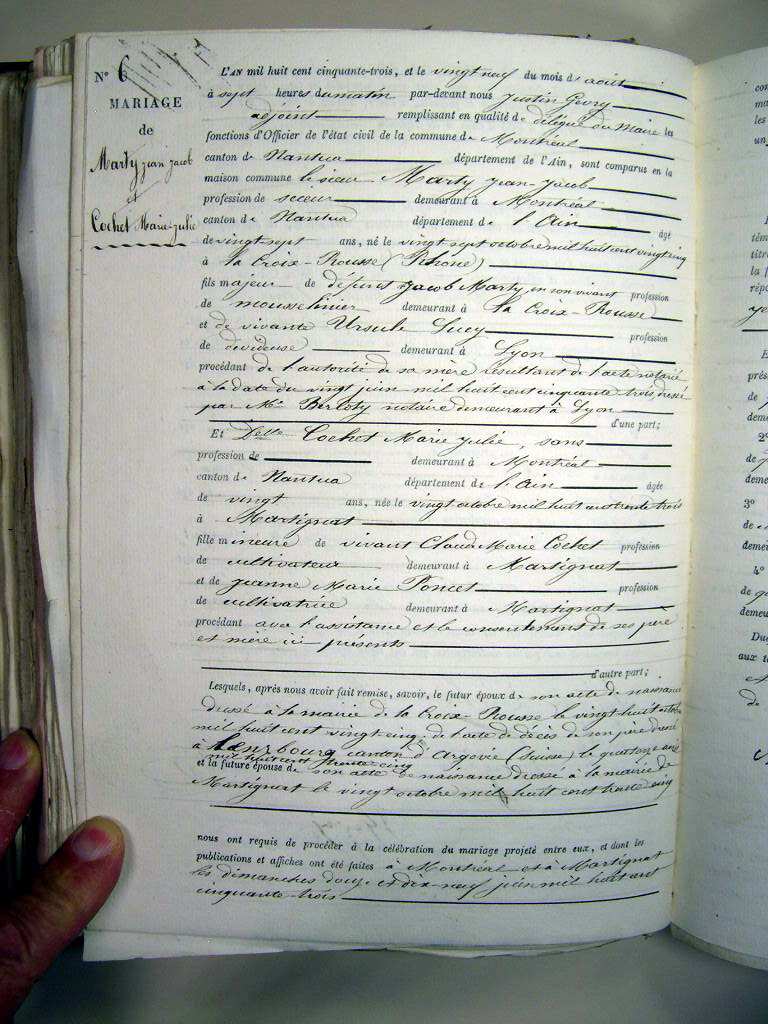 N° 6
MARIAGE
de
Marty jean jacob
et
Cochet Marie julie
L'AN mil huit cent cinquante-trois, et le vingt neuf du mois de août
à sept heures du matin par-devant nous Justin
adjoint remplissant en qualité de délégué du Maire les
fonctions d'Officier de l'état civil de la commune de Montréal
canton de Nantua département de l'AIN, sont comparus en la
maison commune le sieur Marty jean jacob
profession de scieur demeurant à Montréal
canton de Nantua département de l'Ain âgé
de vingt sept ans, né le vingt sept octobre mil huit cent vingt cinq
à la Croix-Rousse (Rhone)
fils majeur de défunt jacob Marty, en son vivant profession
de mousselinier demeurant à la Croix-Rousse
et de vivante Ursule Lucy profession
de devideuse demeurant à Lyon
procédant de l'autorité de sa mère résultant de l'acte notarié
à la date du vingt juin mil huit cent cinquante trois, dressé
par Me notaire demeurant à Lyon
d'une part;
Et Delle Cochet Marie julie, sans
profession de demeurant à Montréal
canton de Nantua département de l'Ain âgée
de vingt ans, née le vingt octobre mil huit cent trente trois
à Martignat
fille mineure de vivant Claude Marie Cochet profession
de cultivateur demeurant à Martignat
et de jeanne Marie Poncet profession
de cultivatrice demeurant à Martignat
procédant avec l'assistance et le consentement de ses père
et mère ici présents
d'autre part;
Lesquels, après nous avoir fait remise, savoir, le futur époux de son acte de naissance
dressé à la mairie de la Croix-Rousse le vingt huit octobre
mil huit cent vingt cinq, de l'acte de décès de son père dressé
à Lenzbourg canton d'Argovie (Suisse) le quatorze août
mil huit cent trente cinq
et la future épouse de son acte de naissance dressé à la mairie de
Martignat le vingt octobre mil huit cent trente cinq
nous ont requis de procéder à la célébration du mariage projeté entre eux, et dont les
publications et affiches ont été faites à Montréal et à Martignat
les dimanches douze et dix-neuf juin mil huit cent
cinquante-trois